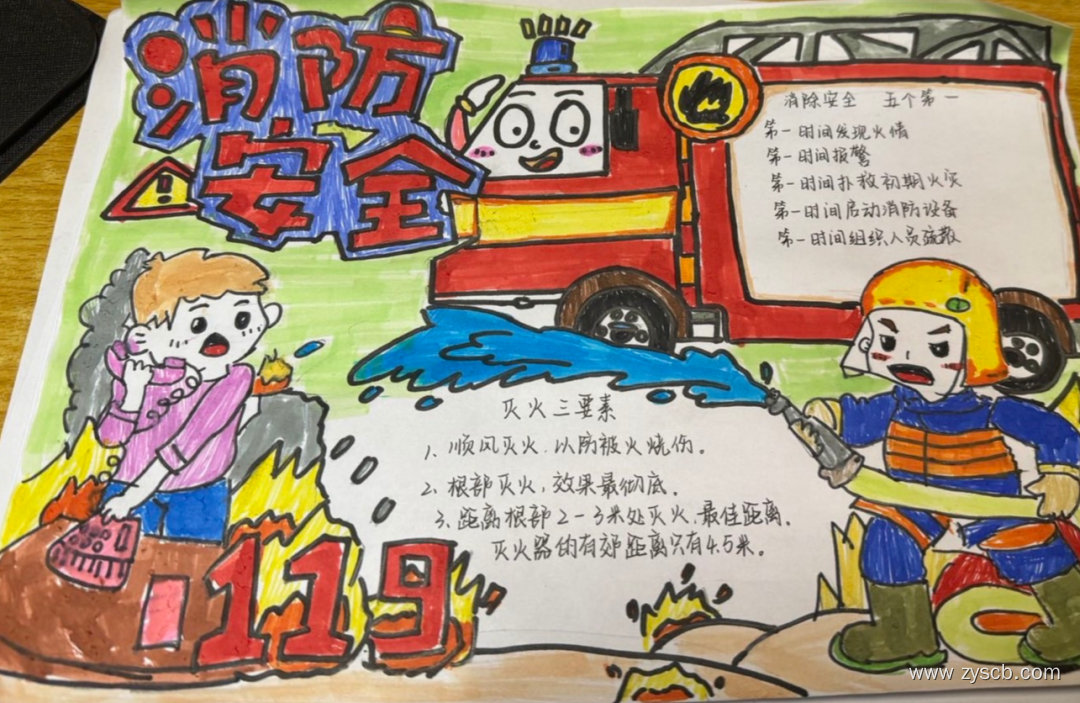 消防
安全
消除安全 五个第一
第一时间发现火情
第一时间报警
第一时间扑救初期火灾
第一时间启动消防设备
第一时间组织人员疏散
灭火三要素
1、顺风灭火,以防被火烧伤。
2、根部灭火,效果最彻底。
3、距离根部2-3米处灭火,最佳距离。
灭火器的有郊距离只有4.5米。
119
www.zyscb.com